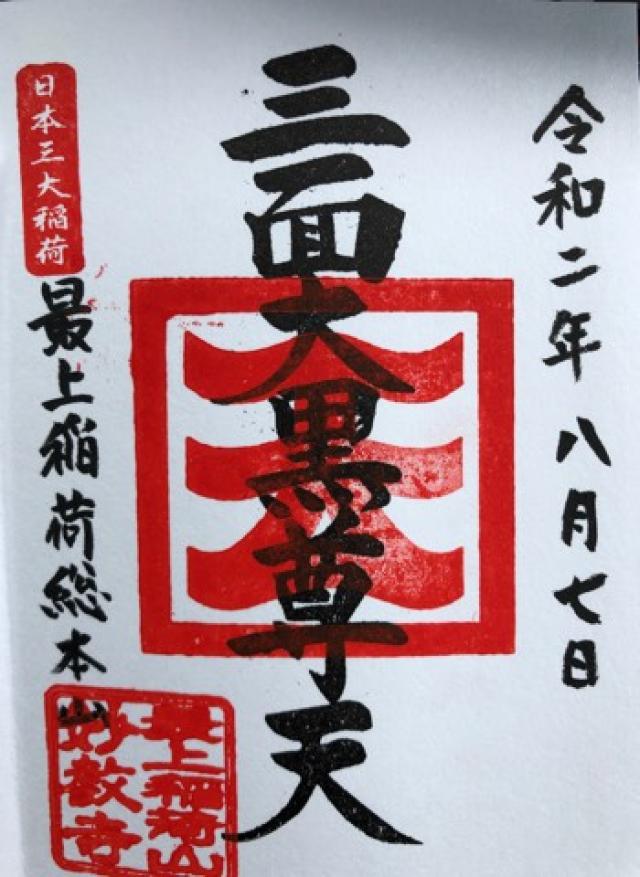 令和二年八月七日
三面大黒尊天
日本三大稲荷
最上稲荷総本山
最上稲荷山
妙教寺